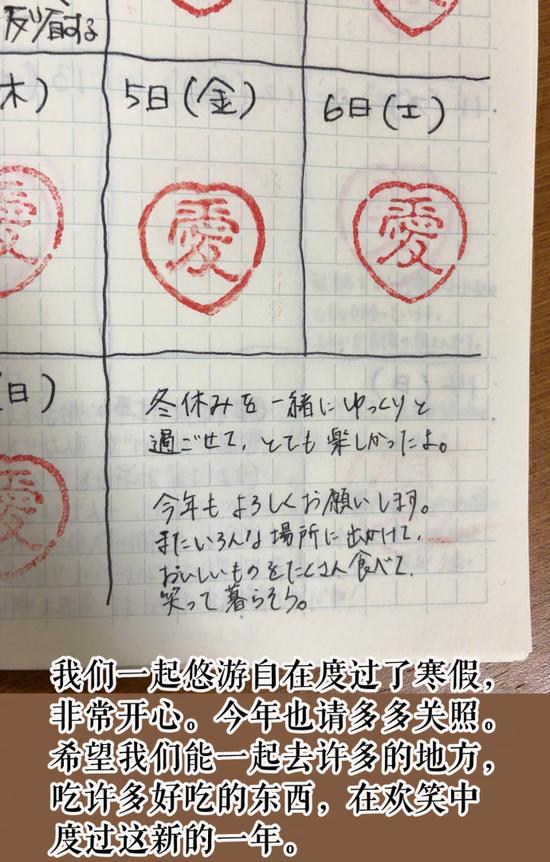 反り宿する
木)
5日(金)
6日(土)
愛
愛
愛
(日)
愛
冬休みを一緒にゆっくりと
過ごせて、とても楽しかったよ。
今年もよろしくお願いします。
またいろんな場所に出かけて、
おいしいものをたくさん食べて、
笑って暮らそう。
我们一起悠游自在度过了寒假，
非常开心。今年也请多多关照。
希望我们能一起去许多的地方，
吃许多好吃的东西，在欢笑中
度过这新的一年。